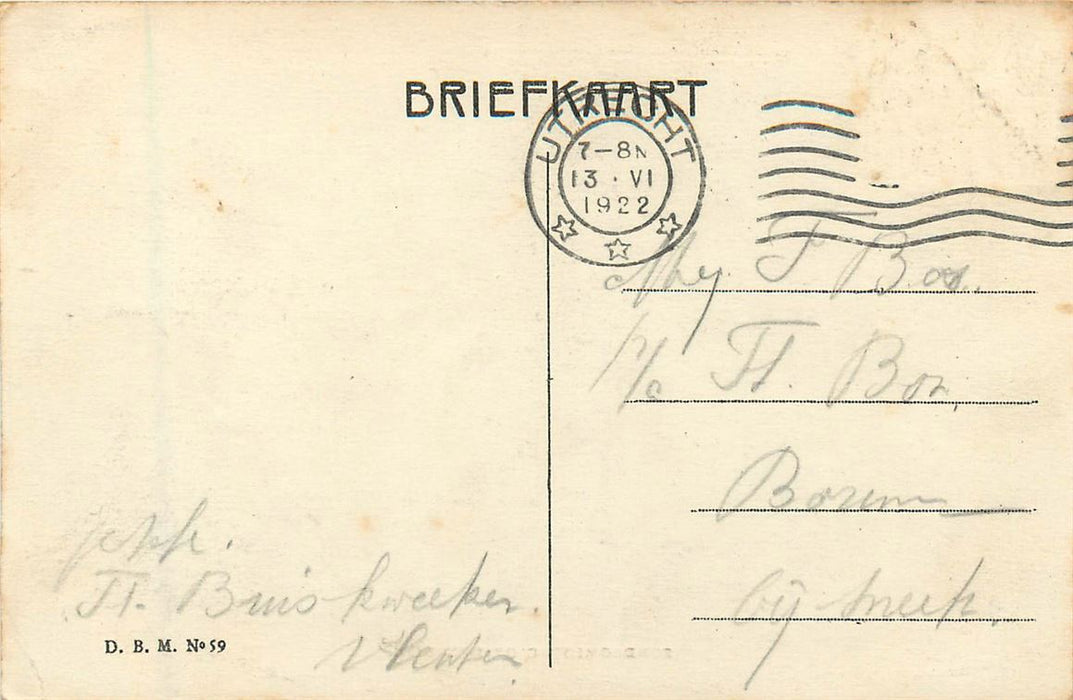 BRIEFKAART
UTRECHT
7-8N
13 · VI
1922
Mej. T Bos.
p/a Tj. Bos,
Bozum
bij Sneek.
Tj. Buiskweeker.
D. B. M. No 59